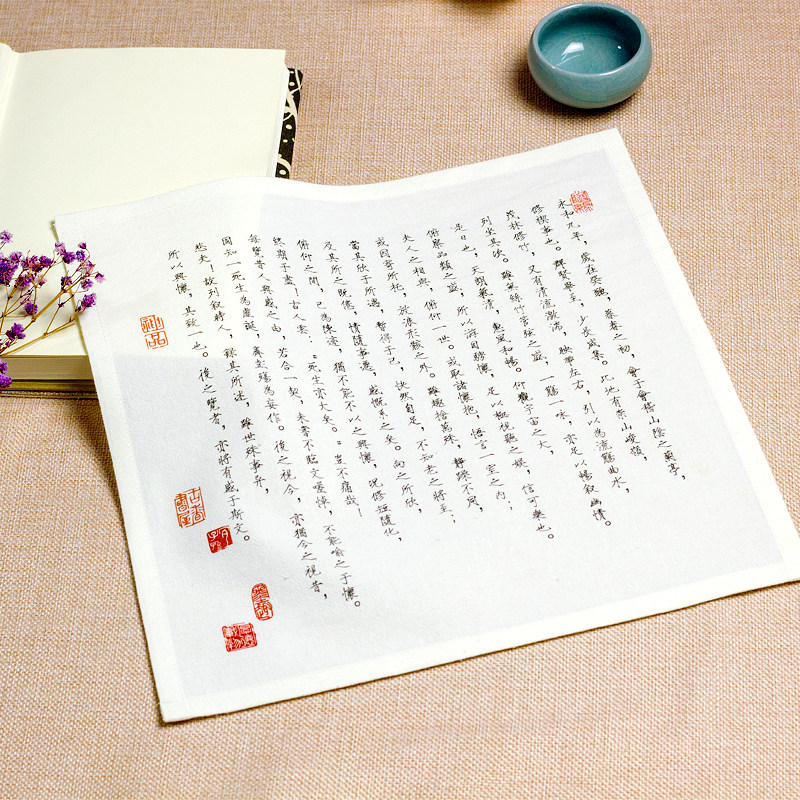 永和九年，歲在癸醜，暮春之初，會于會稽山陰之蘭亭，
修禊事也。群賢畢至，少長咸集。此地有崇山峻領，
茂林修竹，又有清流激湍，映帶左右，引以為流觴曲水，
列坐其次。雖無絲竹管弦之盛，一觴一咏，亦足以暢叙幽情。
是日也，天朗氣清，惠風和暢。仰觀宇宙之大，
俯察品類之盛，所以游目騁懷，足以極視聽之娛，信可樂也。
夫人之相與，俯仰一世。或取諸懷抱，悟言一室之內；
或因寄所托，放浪形骸之外。雖趣捨萬殊，靜躁不同，
當其欣于所遇，暫得于己，快然自足，不知老之將至；
及其所之既倦，情隨事遷，感慨系之矣。向之所欣，
俯仰之間，已為陳迹，猶不能不以之興懷，況修短隨化，
終期于盡！古人雲：“死生亦大矣。”豈不痛哉！
每覽昔人興感之由，若合一契，未嘗不臨文嗟悼，不能喻之于懷。
固知一死生為虛誕，齊彭殤為妄作。後之視今，亦猶今之視昔，
悲夫！故列叙時人，錄其所述，雖世殊事异，
所以興懷，其致一也。後之覽者，亦將有感于斯文。
神品
古香書屋